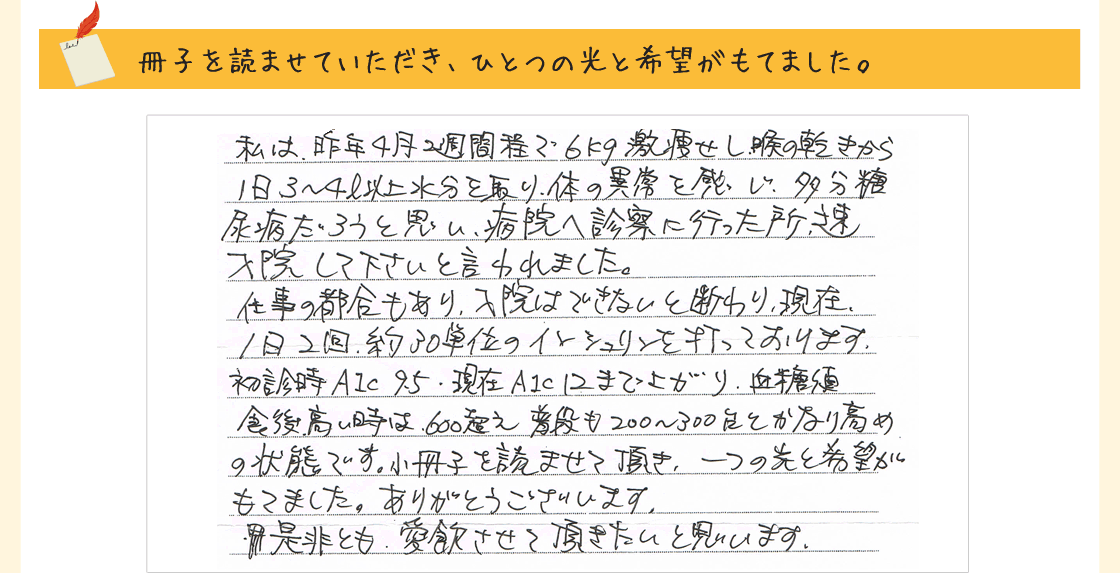 冊子を読ませていただき、ひとつの光と希望がもてました。
私は、昨年4月2週間程で6kg激痩せし、喉の乾きから
1日3〜4ℓ以上水分を取り、体の異常を感じ、多分糖
尿病だろうと思い、病院へ診察に行った所、速
入院して下さいと言われました。
仕事の都合もあり、入院はできないと断わり、現在、
1日2回、約30単位のインシュリンを打っております。
初診時A1c 9.5・現在A1c 12まで上がり、血糖値
食後高い時は、600超え 普段も200〜300台とかなり高め
の状態です。小冊子を読ませて頂き、一つの光と希望が
もてました。ありがとうございます。
是非とも、愛飲させて頂きたいと思います。